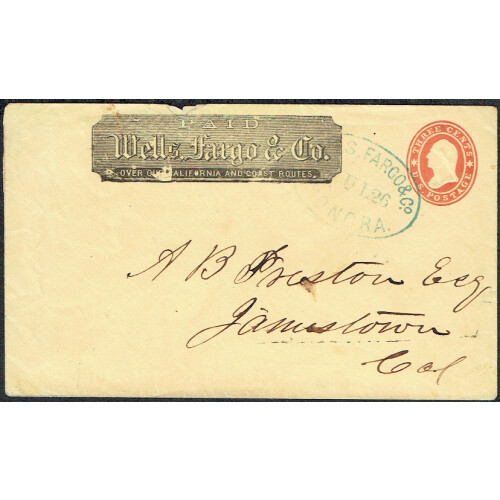 PAID
Wells, Fargo & Co.
OVER OUR CALIFORNIA AND COAST ROUTES.
S, FARGO & Co
UL 26
NORA.
THREE CENTS
U.S. POSTAGE
A B Preston Esq
Jamestown
Cal